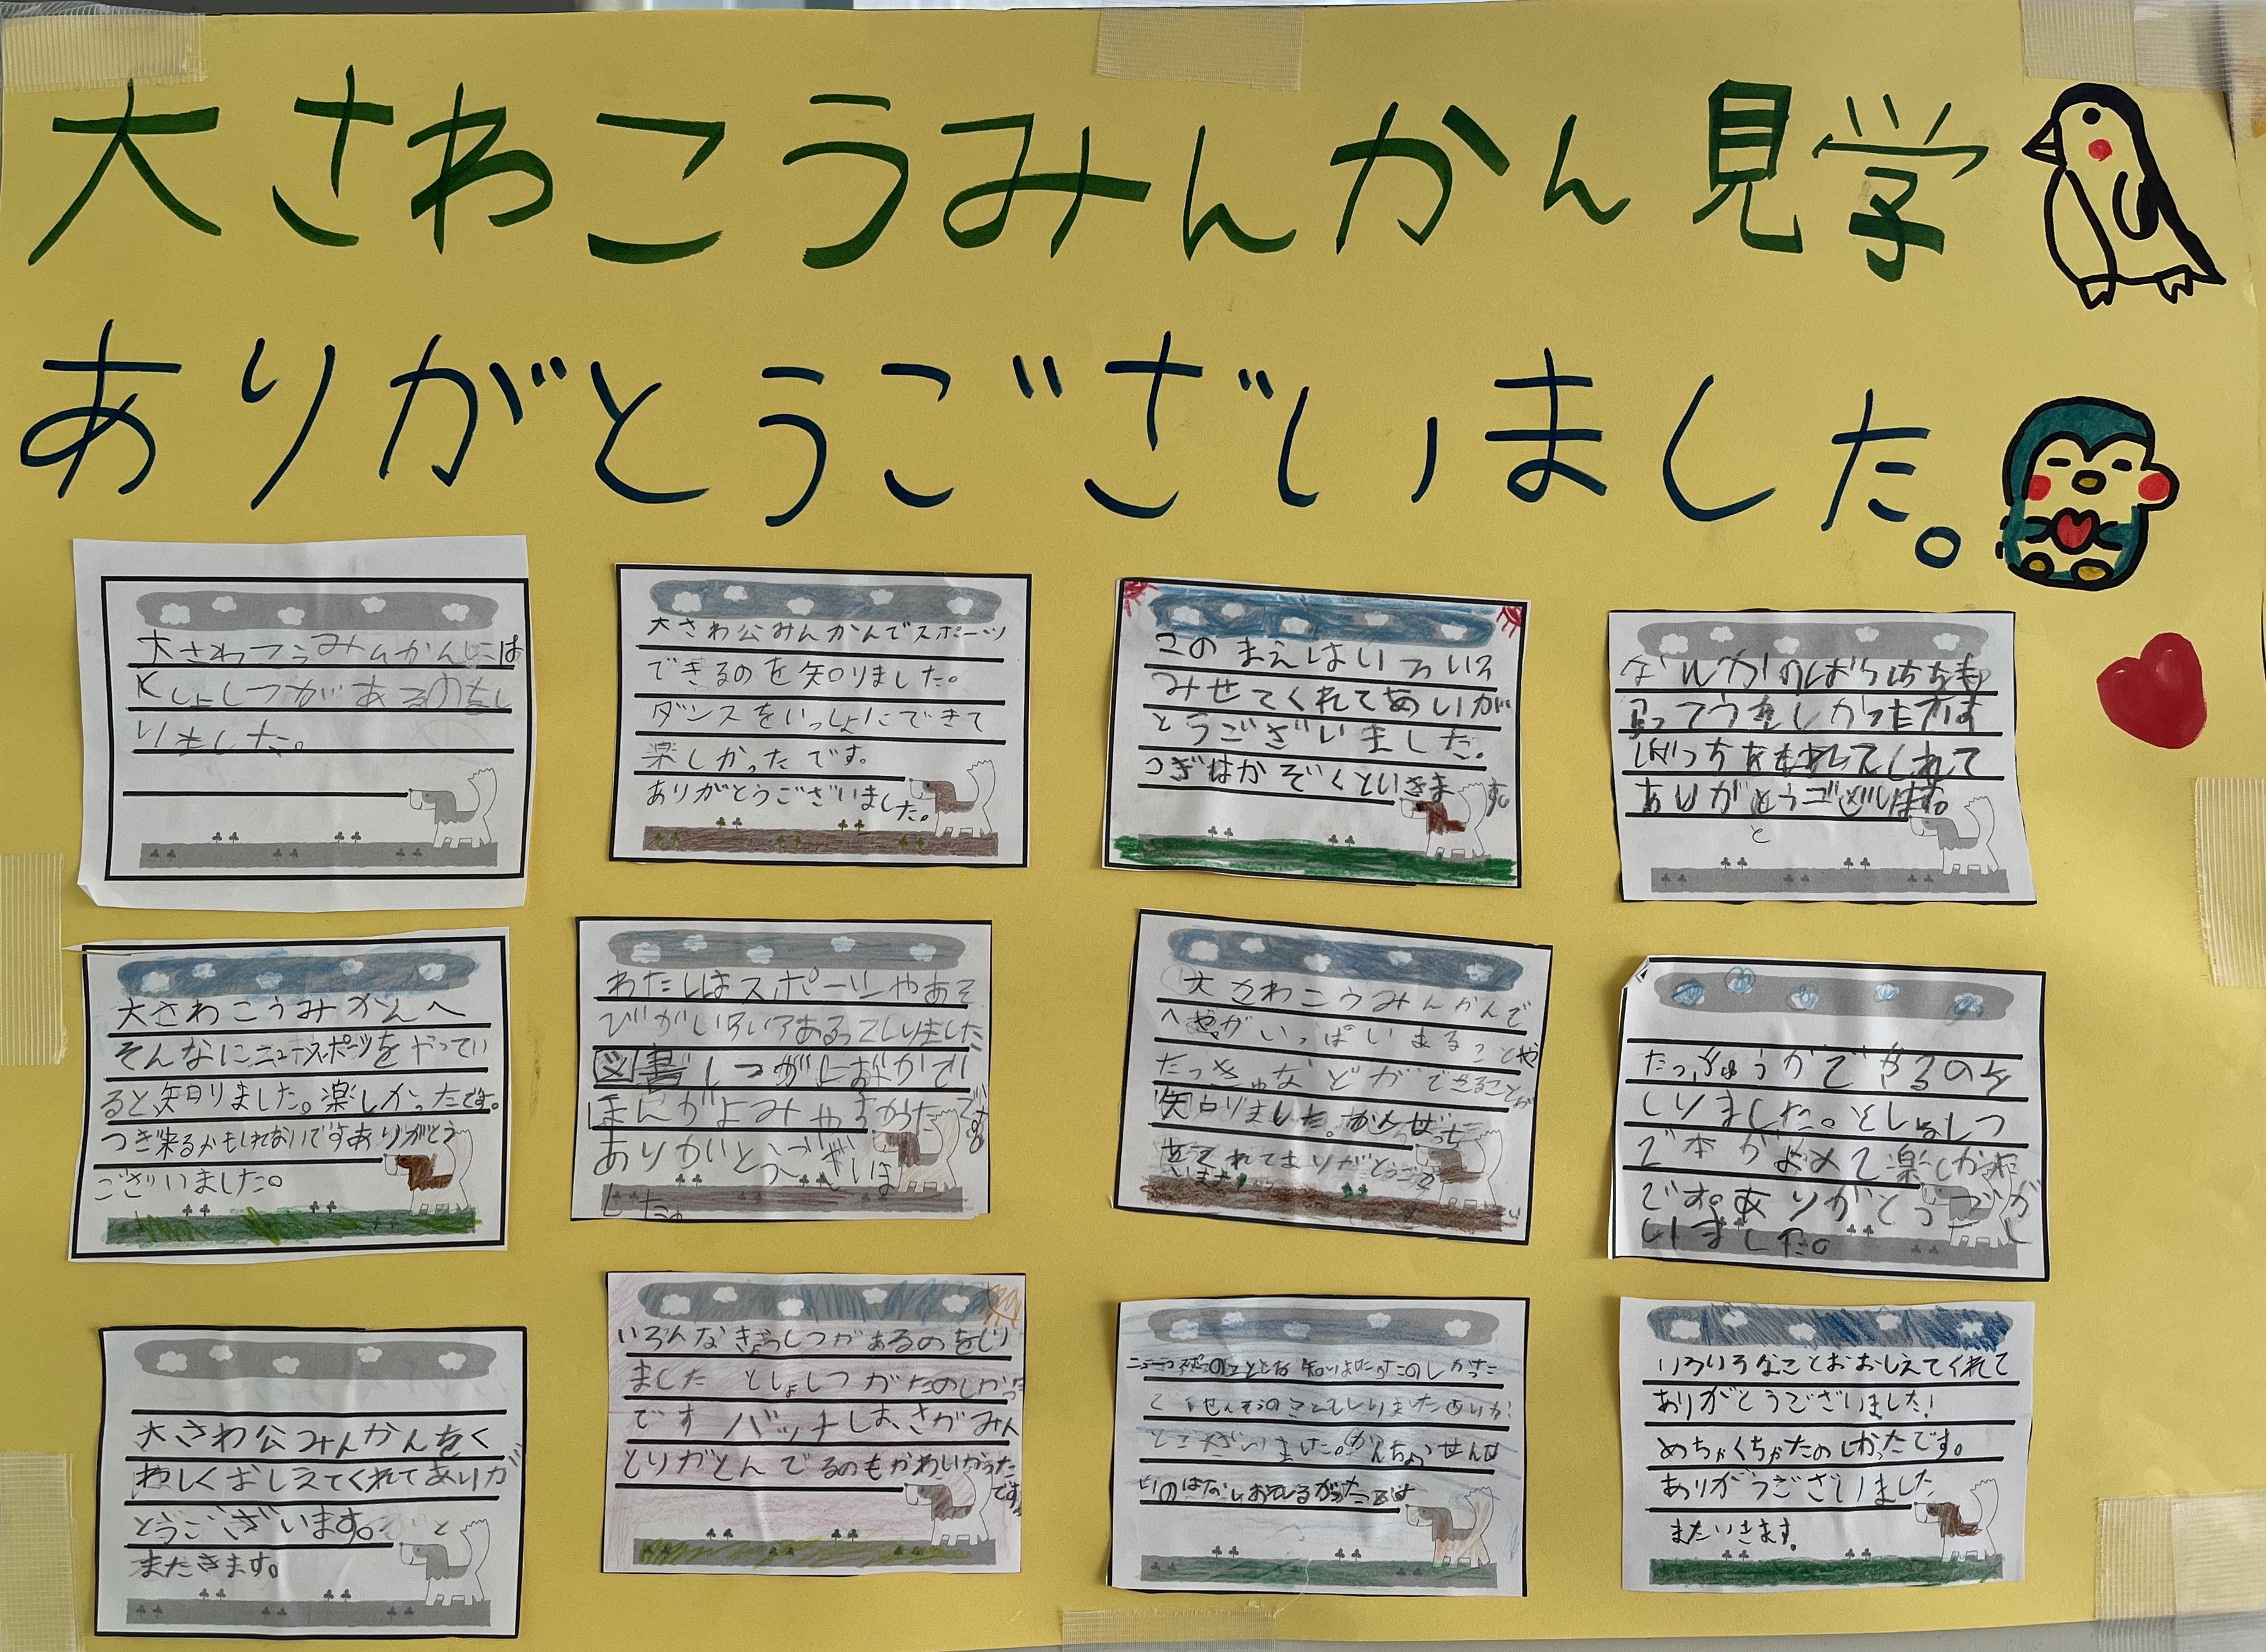 大さわこうみんかん見学
ありがとうございました。
大さわこうみんかんには
としょしつがあるのをし
りました。
大さわ公みんかんでスポーツ
できるのを知りました。
ダンスをいっしょにできて
楽しかったです。
ありがとうございました。
このまえはいろいろ
みせてくれてありが
とうございました。
つぎはかぞくといきます
ばっちをもらってうれしかったです
ばっちをくれて
ありがとうございます。
大さわこうみかんへ
そんなにニュースポーツをやってい
ると知りました。楽しかったです。
つぎ来るかもしれないですありがとう
ございました。
わたしはスポーツやあそ
びがいろいろあるってしりました
図書しつがしずかで
ほんがよみやすかったです
ありがとうございま
した。
大さわこうみんかんで
へやがいっぱいあることや
たっきゅなどができることが
知りました。かんばっち
をくれてありがとうござ
います
たっきゅうがでるのを
しりました。としょしつ
で本がよめて楽しかった
です。ありがとうござ
いました。
大さわ公みんかんをく
わしくおしえてくれてありが
とうございます。
またきます。
いろんなきょうしつがあるのをしり
ました としょしつがたのしかった
です バッチしおさがみん
とりがとんでるのもかわいかった
です
ニュースポーツのことを知りましたたのしかった
でせんそうのことしりましたありが
とございました。かんちょうせんせ
いのはなし
いろいろなことおおしえてくれて
ありがとうございました!
めちゃくちゃたのしかったです。
ありがうございました
またいきます。